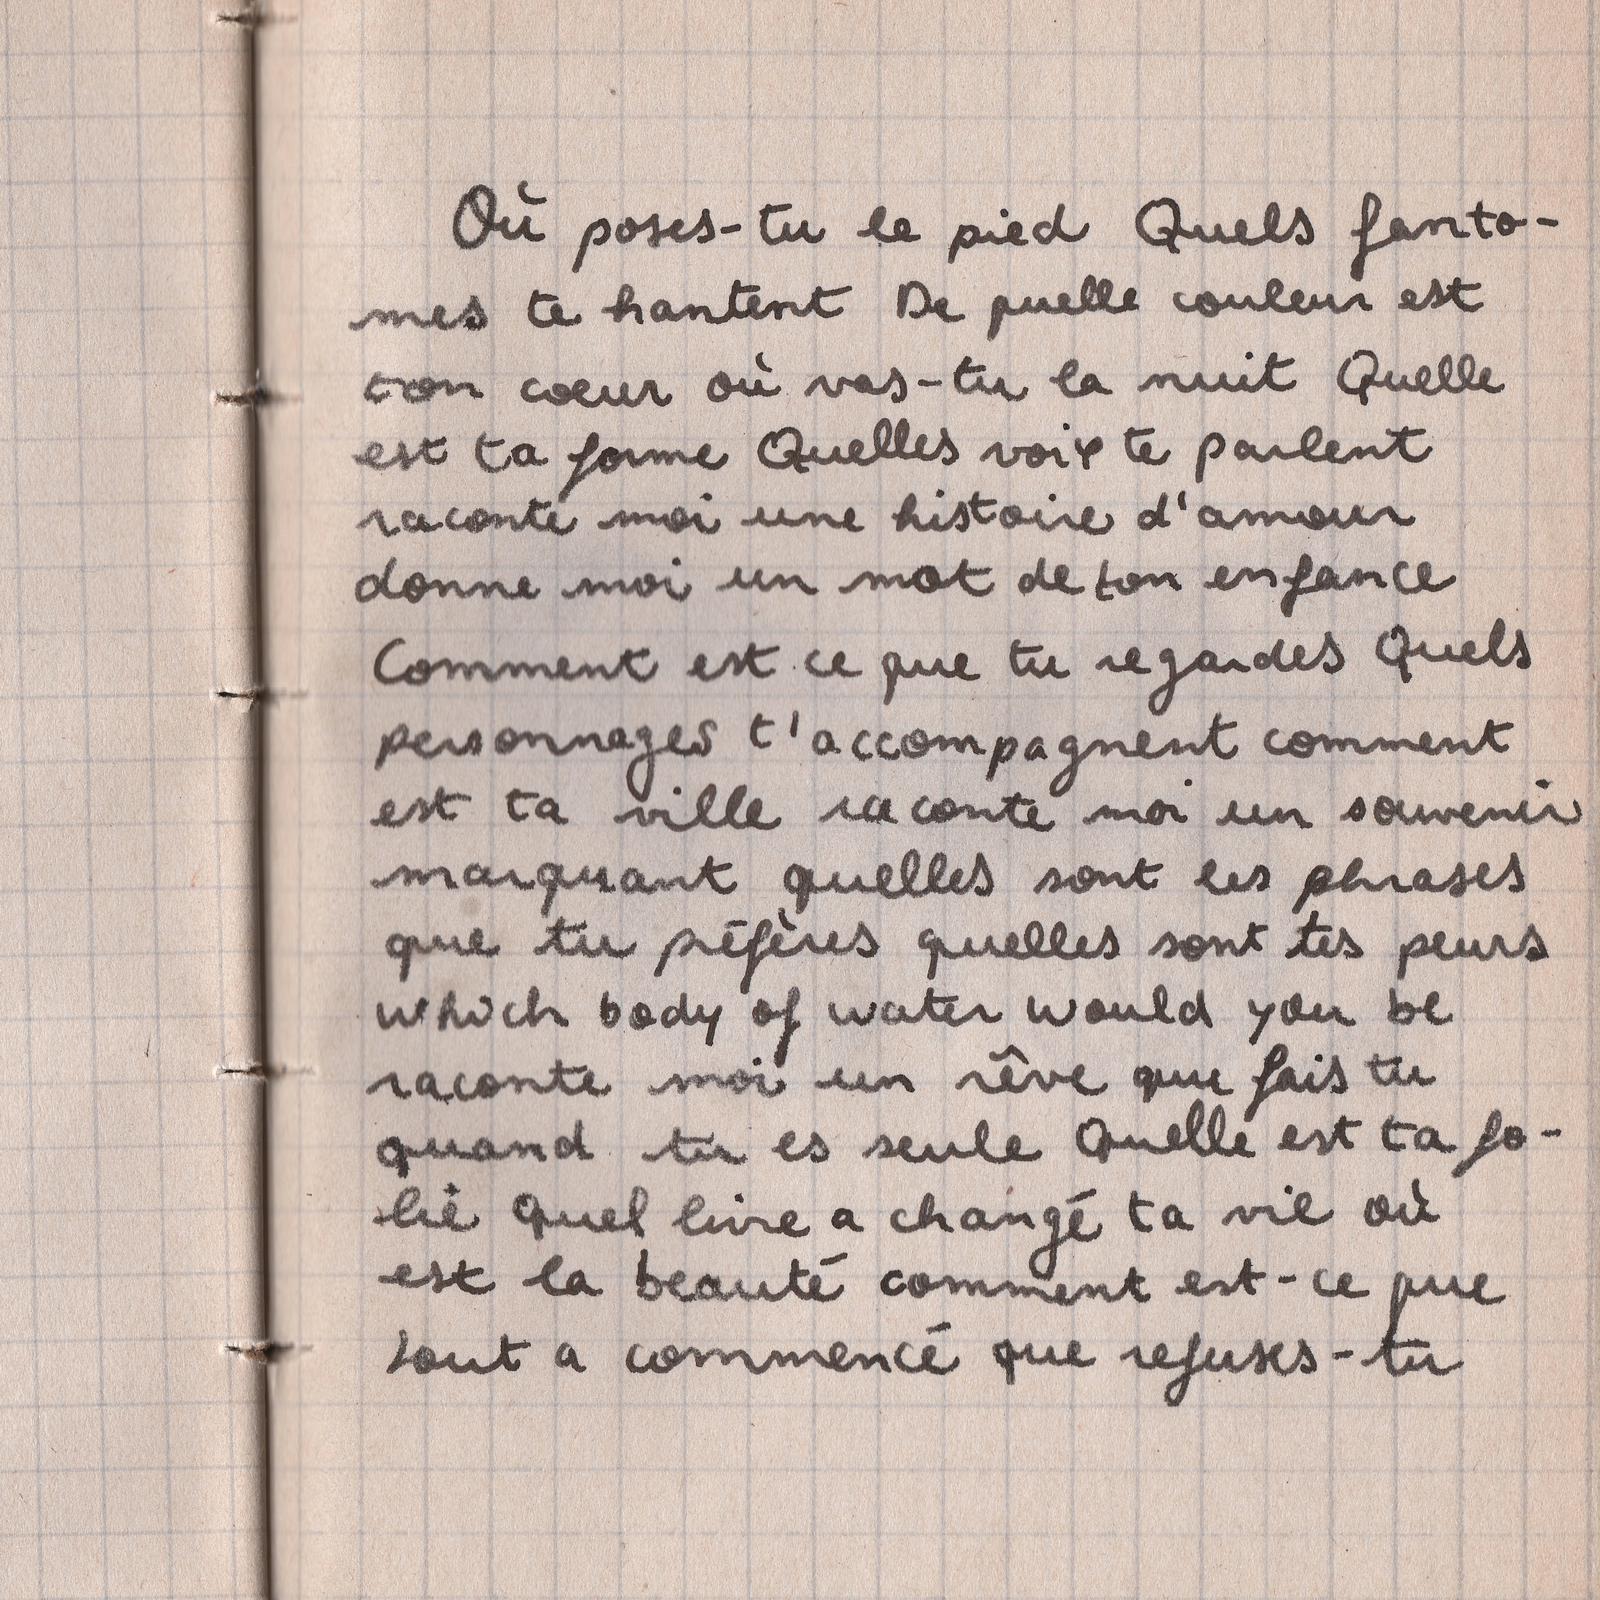 Où poses-tu le pied Quels fanto-
mes te hantent De quelle couleur est
ton cœur où vas-tu la nuit Quelle
est ta forme Quelles voix te parlent
raconte moi une histoire d'amour
donne moi un mot de ton enfance
Comment est ce que tu regardes Quels
personnages t'accompagnent comment
est ta ville raconte moi un souvenir
marquant quelles sont les phrases
que tu préfères quelles sont tes peurs
which body of water would you be
raconte moi un rêve que fais tu
quand tu es seule Quelle est ta fo-
lie Quel livre a changé ta vie où
est la beauté comment est-ce que
tout a commencé que refuses-tu